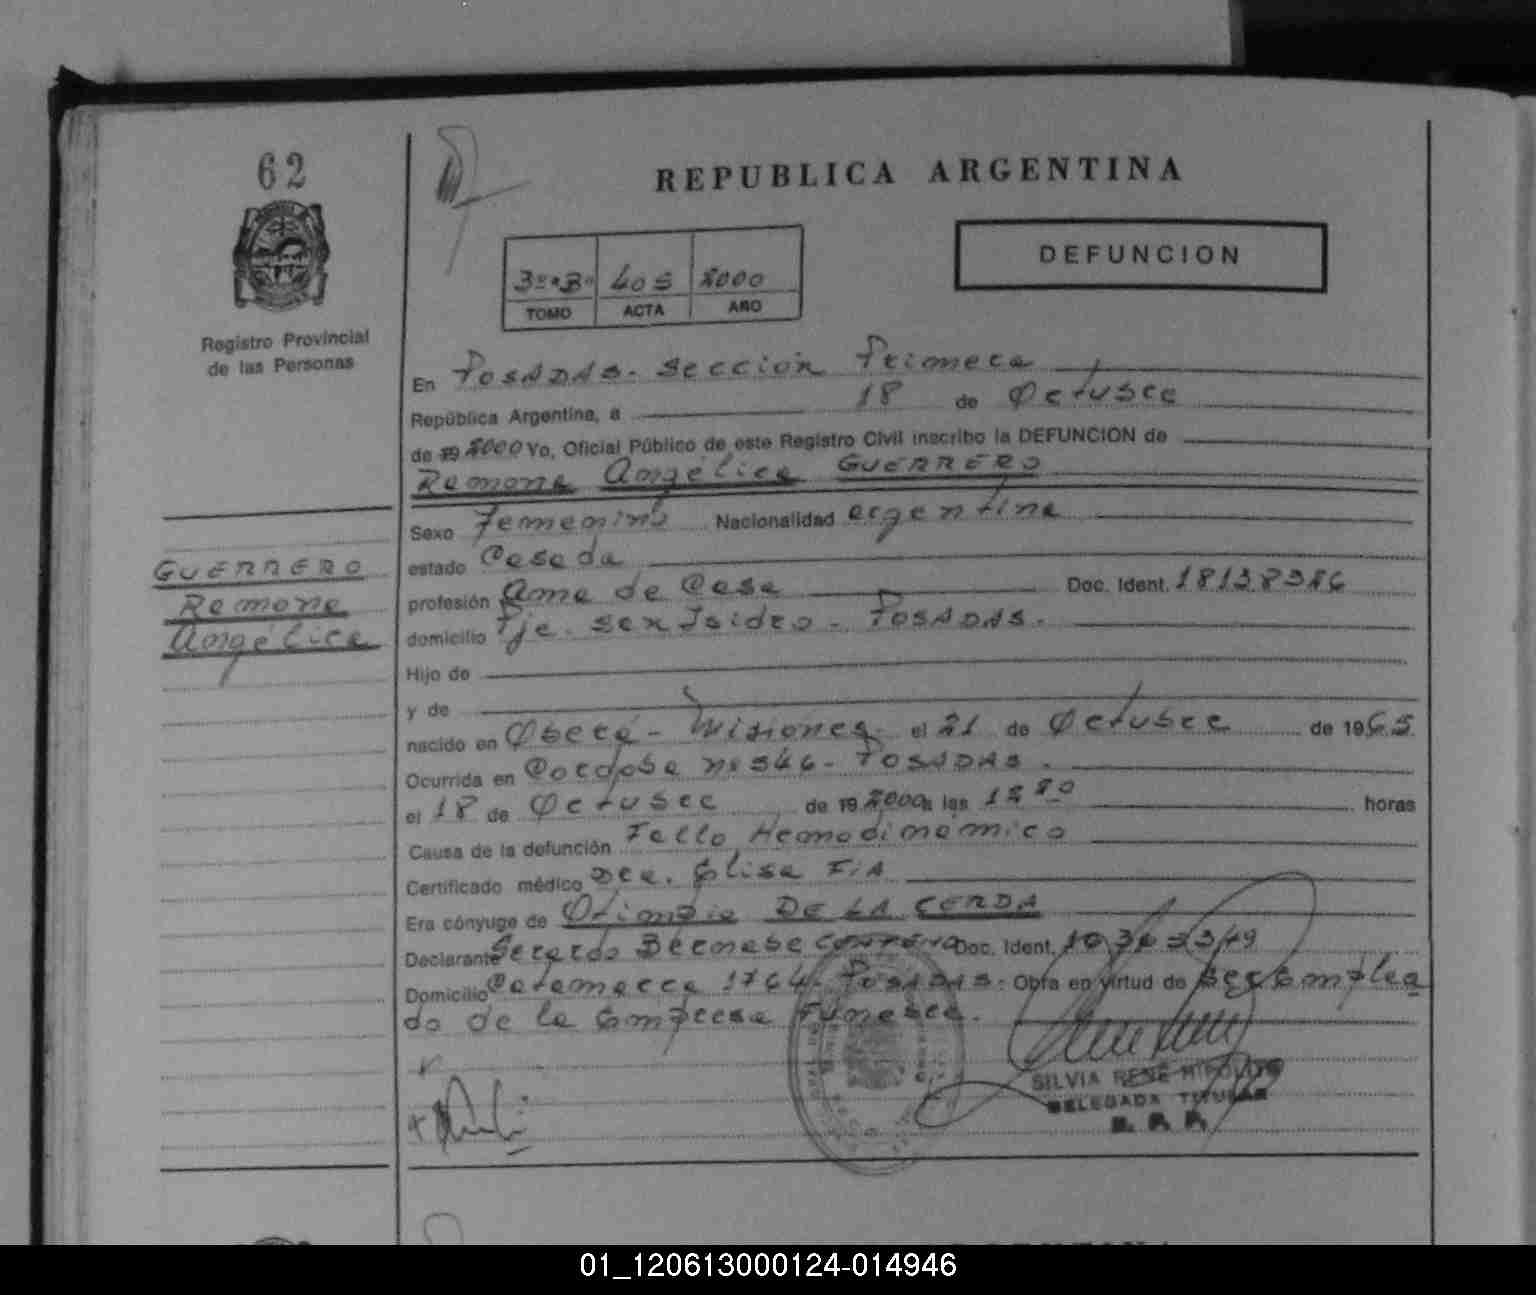 62
REPUBLICA ARGENTINA
Registro Provincial
de las Personas
DEFUNCION
3º "B" 405 2000
TOMO ACTA AÑO
En POSADAS - Sección Primera
República Argentina, a 18 de Octubre
de 19 2000 Yo, Oficial Público de este Registro Civil inscribo la DEFUNCION de
Ramona Angélica GUERRERO
GUERRERO
Ramona
Angélica
Sexo Femenino Nacionalidad argentina
estado Casada
profesión Ama de Casa Doc. Ident. 18138386
domicilio Pje. San Isidro - POSADAS.
Hijo de
y de
nacido en Oberá - Misiones el 21 de Octubre de 1965
Ocurrida en Cordoba nº 346 - POSADAS.
el 18 de Octubre de 19 2000 a las horas
Causa de la defunción Fallo Hemodinamico
Certificado médico Dra. Elisa FIA
Era cónyuge de Olimpio DE LA CERDA
Declarante Gerardo Bernabe Doc. Ident.
Domicilio Catamarca 1764 - POSADAS. Obra en virtud de Ser Emplea
do de la Empresa Funebre.
SILVIA RENÉ HIPOLITO
DELEGADA TITULAR
R. P. P.
01_120613000124-014946